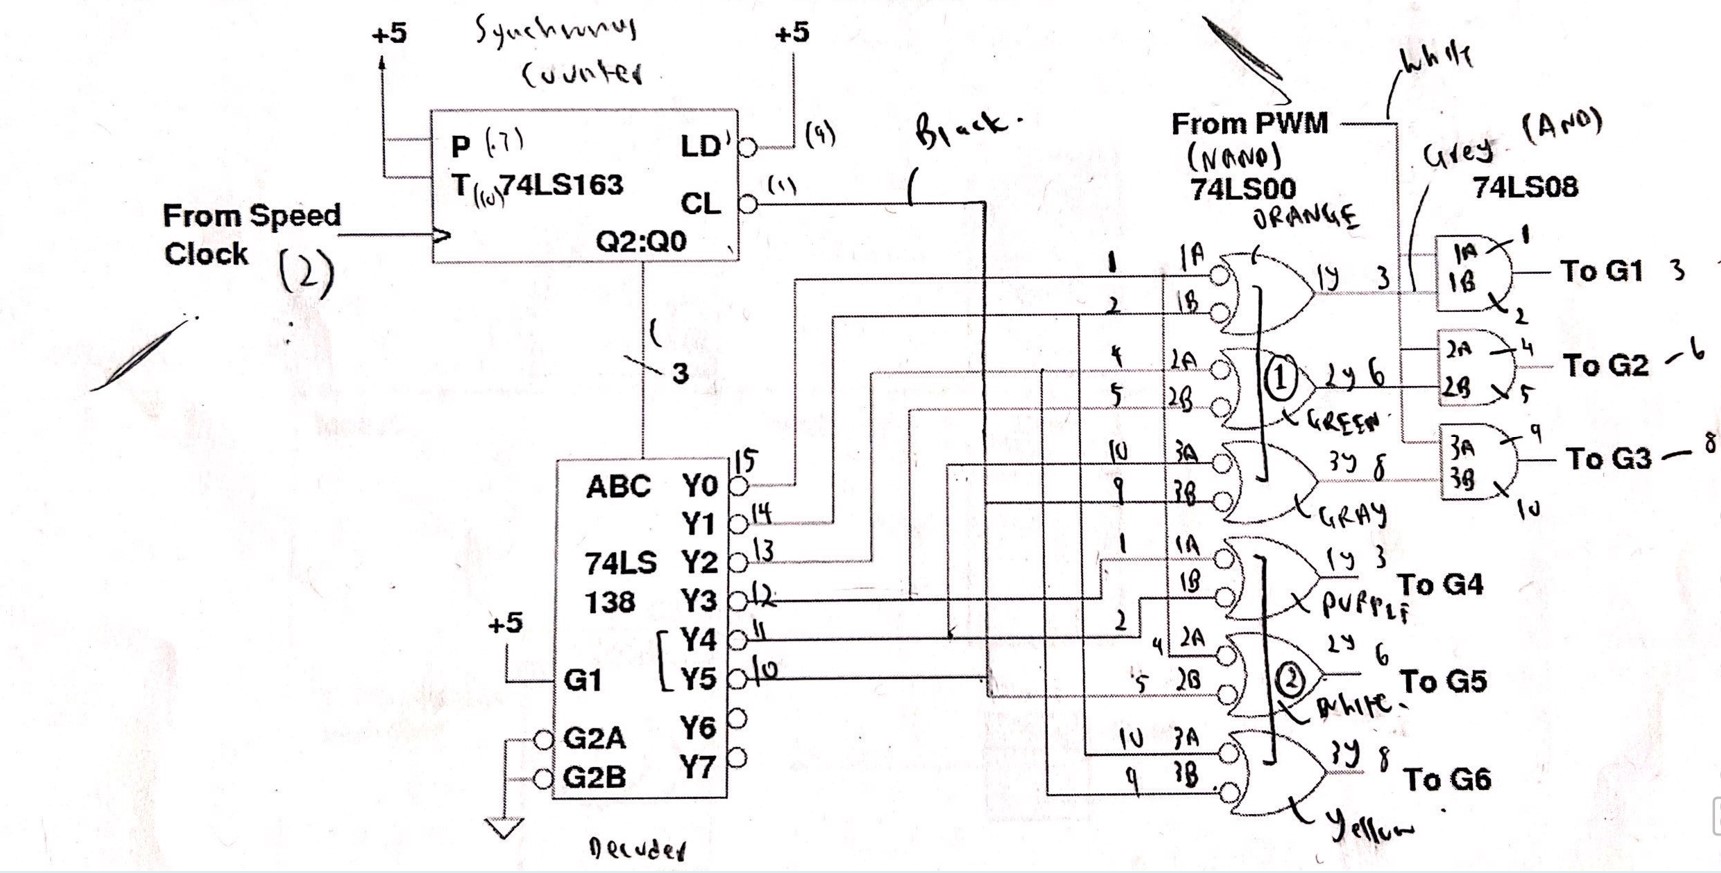 Synchronus
Counter
+5
+5
White
P (7)
LD' (9)
Black.
From PWM
(NAND)
74LS00
ORANGE
Grey (AND)
74LS08
T (10) 74LS163
CL (1)
From Speed
Clock (2)
Q2:Q0
1 1A
2 1B
1Y 3
1A 1
1B 2
To G1 3
3
4 2A
5 2B
1
2Y 6
GREEN
2A 4
2B 5
To G2 - 6
10 3A
9 3B
3Y 8
GRAY
3A 9
3B 10
To G3 - 8
ABC Y0 15
Y1 14
74LS Y2 13
138 Y3 12
Y4 11
+5
G1 Y5 10
G2A Y6
G2B Y7
1 1A
2 1B
1Y 3
PURPLE
To G4
4 2A
5 2B
2
2Y 6
White.
To G5
10 3A
9 3B
3Y 8
Yellow
To G6
Decoder